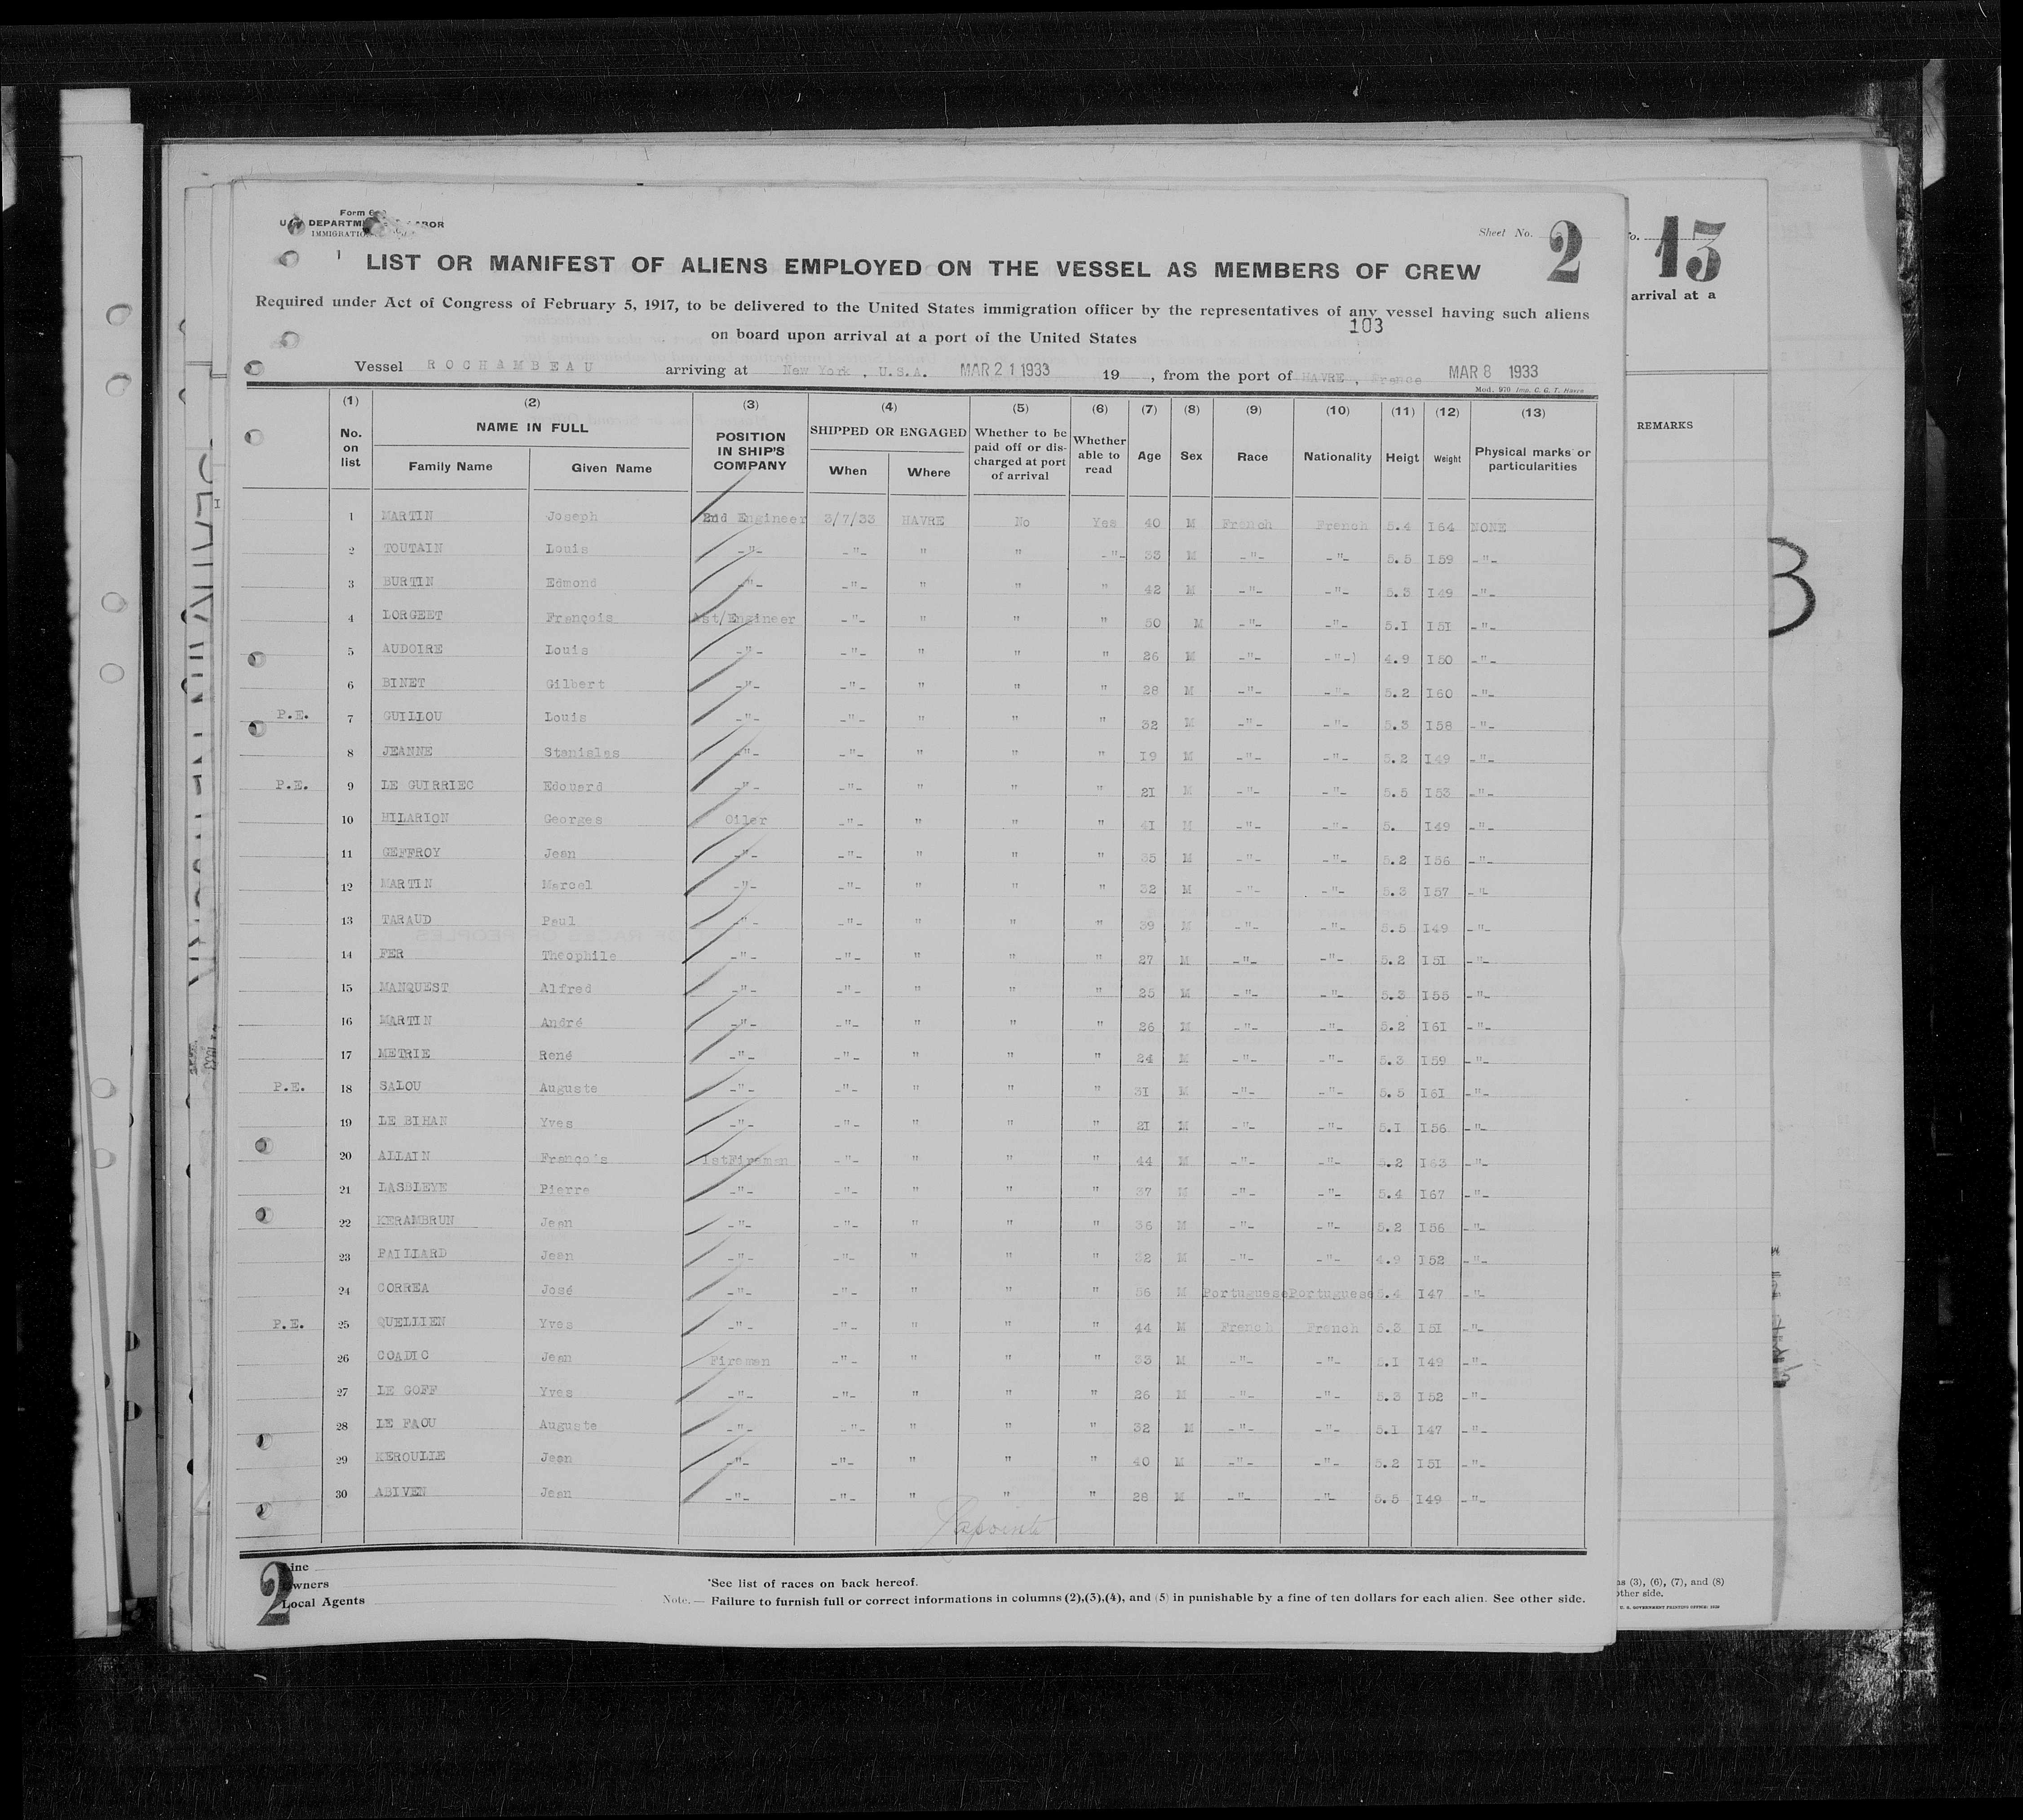 Form 6
U. DEPARTM ABOR
IMMIGRATIO
Sheet No. 2
LIST OR MANIFEST OF ALIENS EMPLOYED ON THE VESSEL AS MEMBERS OF CREW
Required under Act of Congress of February 5, 1917, to be delivered to the United States immigration officer by the representatives of any vessel having such aliens
on board upon arrival at a port of the United States
103
Vessel ROCHAMBEAU arriving at New York, U.S.A. MAR 21 1933 19 , from the port of HAVRE, France MAR 8 1933
Mod. 970 Imp. C. G. T. Havre
(1) (2) (3) (4) (5) (6) (7) (8) (9) (10) (11) (12) (13)
No. on list NAME IN FULL Family Name Given Name POSITION IN SHIP'S COMPANY SHIPPED OR ENGAGED When Where Whether to be paid off or discharged at port of arrival Whether able to read Age Sex Race Nationality Heigt Weight Physical marks or particularities
1 MARTIN Joseph 2nd Engineer 3/7/33 HAVRE No Yes 40 M French French 5.4 I64 NONE
2 TOUTAIN Louis -"- -"- " " -"- 33 M -"- -"- 5.5 I59 -"-
3 BURTIN Edmond -"- -"- " " " 42 M -"- -"- 5.3 I49 -"-
4 LORGEET François Ast/Engineer -"- " " " 50 M -"- -"- 5.I I5I -"-
5 AUDOIRE Louis -"- -"- " " " 26 M -"- -"-) 4.9 I50 -"-
6 BINET Gilbert -"- -"- " " " 28 M -"- -"- 5.2 I60 -"-
P.E. 7 GUILLOU Louis -"- -"- " " " 32 M -"- -"- 5.3 I58 -"-
8 JEANNE Stanislas -"- -"- " " " I9 M -"- -"- 5.2 I49 -"-
P.E. 9 LE GUIRRIEC Edouard -"- -"- " " " 2I M -"- -"- 5.5 I53 -"-
10 HILARION Georges Oiler -"- " " " 4I M -"- -"- 5. I49 -"-
11 GEFFROY Jean -"- -"- " " " 35 M -"- -"- 5.2 I56 -"-
12 MARTIN Marcel -"- -"- " " " 32 M -"- -"- 5.3 I57 -"-
13 TARAUD Paul -"- -"- " " " 39 M -"- -"- 5.5 I49 -"-
14 FER Theophile -"- -"- " " " 27 M -"- -"- 5.2 I5I -"-
15 MANQUEST Alfred -"- -"- " " " 25 M -"- -"- 5.3 I55 -"-
16 MARTIN André -"- -"- " " " 26 M -"- -"- 5.2 I6I -"-
17 METRIE René -"- -"- " " " 24 M -"- -"- 5.3 I59 -"-
P.E. 18 SALOU Auguste -"- -"- " " " 3I M -"- -"- 5.5 I6I -"-
19 LE BIHAN Yves -"- -"- " " " 2I M -"- -"- 5.I I56 -"-
20 ALLAIN François 1stFireman -"- " " " 44 M -"- -"- 5.2 I63 -"-
21 LASBLEYE Pierre -"- -"- " " " 37 M -"- -"- 5.4 I67 -"-
22 KERAMBRUN Jean -"- -"- " " " 36 M -"- -"- 5.2 I56 -"-
23 PAILLARD Jean -"- -"- " " " 32 M -"- -"- 4.9 I52 -"-
24 CORREA José -"- -"- " " " 56 M Portuguese Portuguese 5.4 I47 -"-
P.E. 25 QUELLIEN Yves -"- -"- " " " 44 M French French 5.3 I5I -"-
26 COADIC Jean Fireman -"- " " " 33 M -"- -"- 5.1 I49 -"-
27 LE GOFF Yves -"- -"- " " " 26 M -"- -"- 5.3 I52 -"-
28 LE FAOU Auguste -"- -"- " " " 32 M -"- -"- 5.I I47 -"-
29 KEROULLE Jean -"- -"- " " " 40 M -"- -"- 5.2 I5I -"-
30 ABIVEN Jean -"- -"- " " " 28 M -"- -"- 5.5 I49 -"-
Lapointe
2
Line
Owners
Local Agents
*See list of races on back hereof.
Note. — Failure to furnish full or correct informations in columns (2),(3),(4), and (5) in punishable by a fine of ten dollars for each alien. See other side.
o. 15
arrival at a
REMARKS
3
ns (3), (6), (7), and (8)
other side.
U. S. GOVERNMENT PRINTING OFFICE